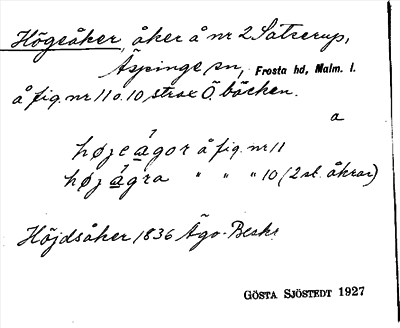 Högeåker, åker å nr 2 Sätserup,
Äspinge sn, Frosta hd, Malm. l.
å fig. nr 11 o. 10 strax Ö. bäcken.
a
høzeágor å fig. nr 11
høzágra " " " 10 (2 st. åkrar)
Höjdsåker 1836 Ägo-Beskr
GÖSTA SJÖSTEDT 1927